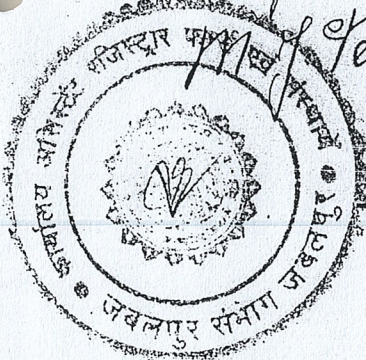 कार्यालय असिस्टेंट रजिस्ट्रार फर्म्स एवं संस्थायें
जबलपुर संभाग जबलपुर